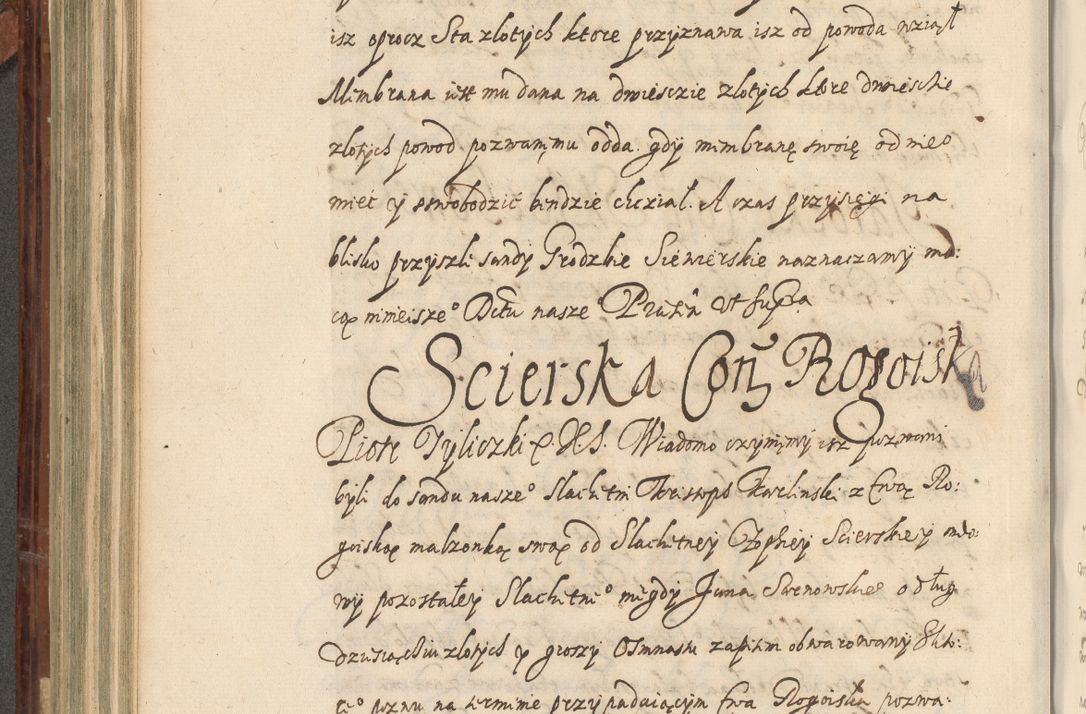 isz oprocz Sta zlotych ktore przyznawa isz od powoda wziął
Mimbrana iest mu dana na dwiesczie zlotych ktore dwiesckie
zlotych powod pozwanᶒmu odda. gdy mimbranę swoię od nie°
mieć y oswobodzić bendzie chcział. A czas przysięgi na
blisko przyszli sandy Grodzkie Siewierskie naznaczamy mo:
cąx ninieisze° Dctu nasze° Ut supra
Scierska Con Rogoiska
Piotr Tyliczki X X S. Wiadomo czynimy isz pozwani
byli do sandu nasze° Slachetni Karlinski z Ewą Ro:
goiską malzonką swą od Slachetney Zophiey Scierskiey wdo:
wy pozostałey Slachetne° niegdy Jana o dług
dziesiączkiu zlotych y groszy Osmnastu zapisem obwarowany Skto:
re° poznu na terminie przypadaiącym Ewa Rogoiska pozwa: